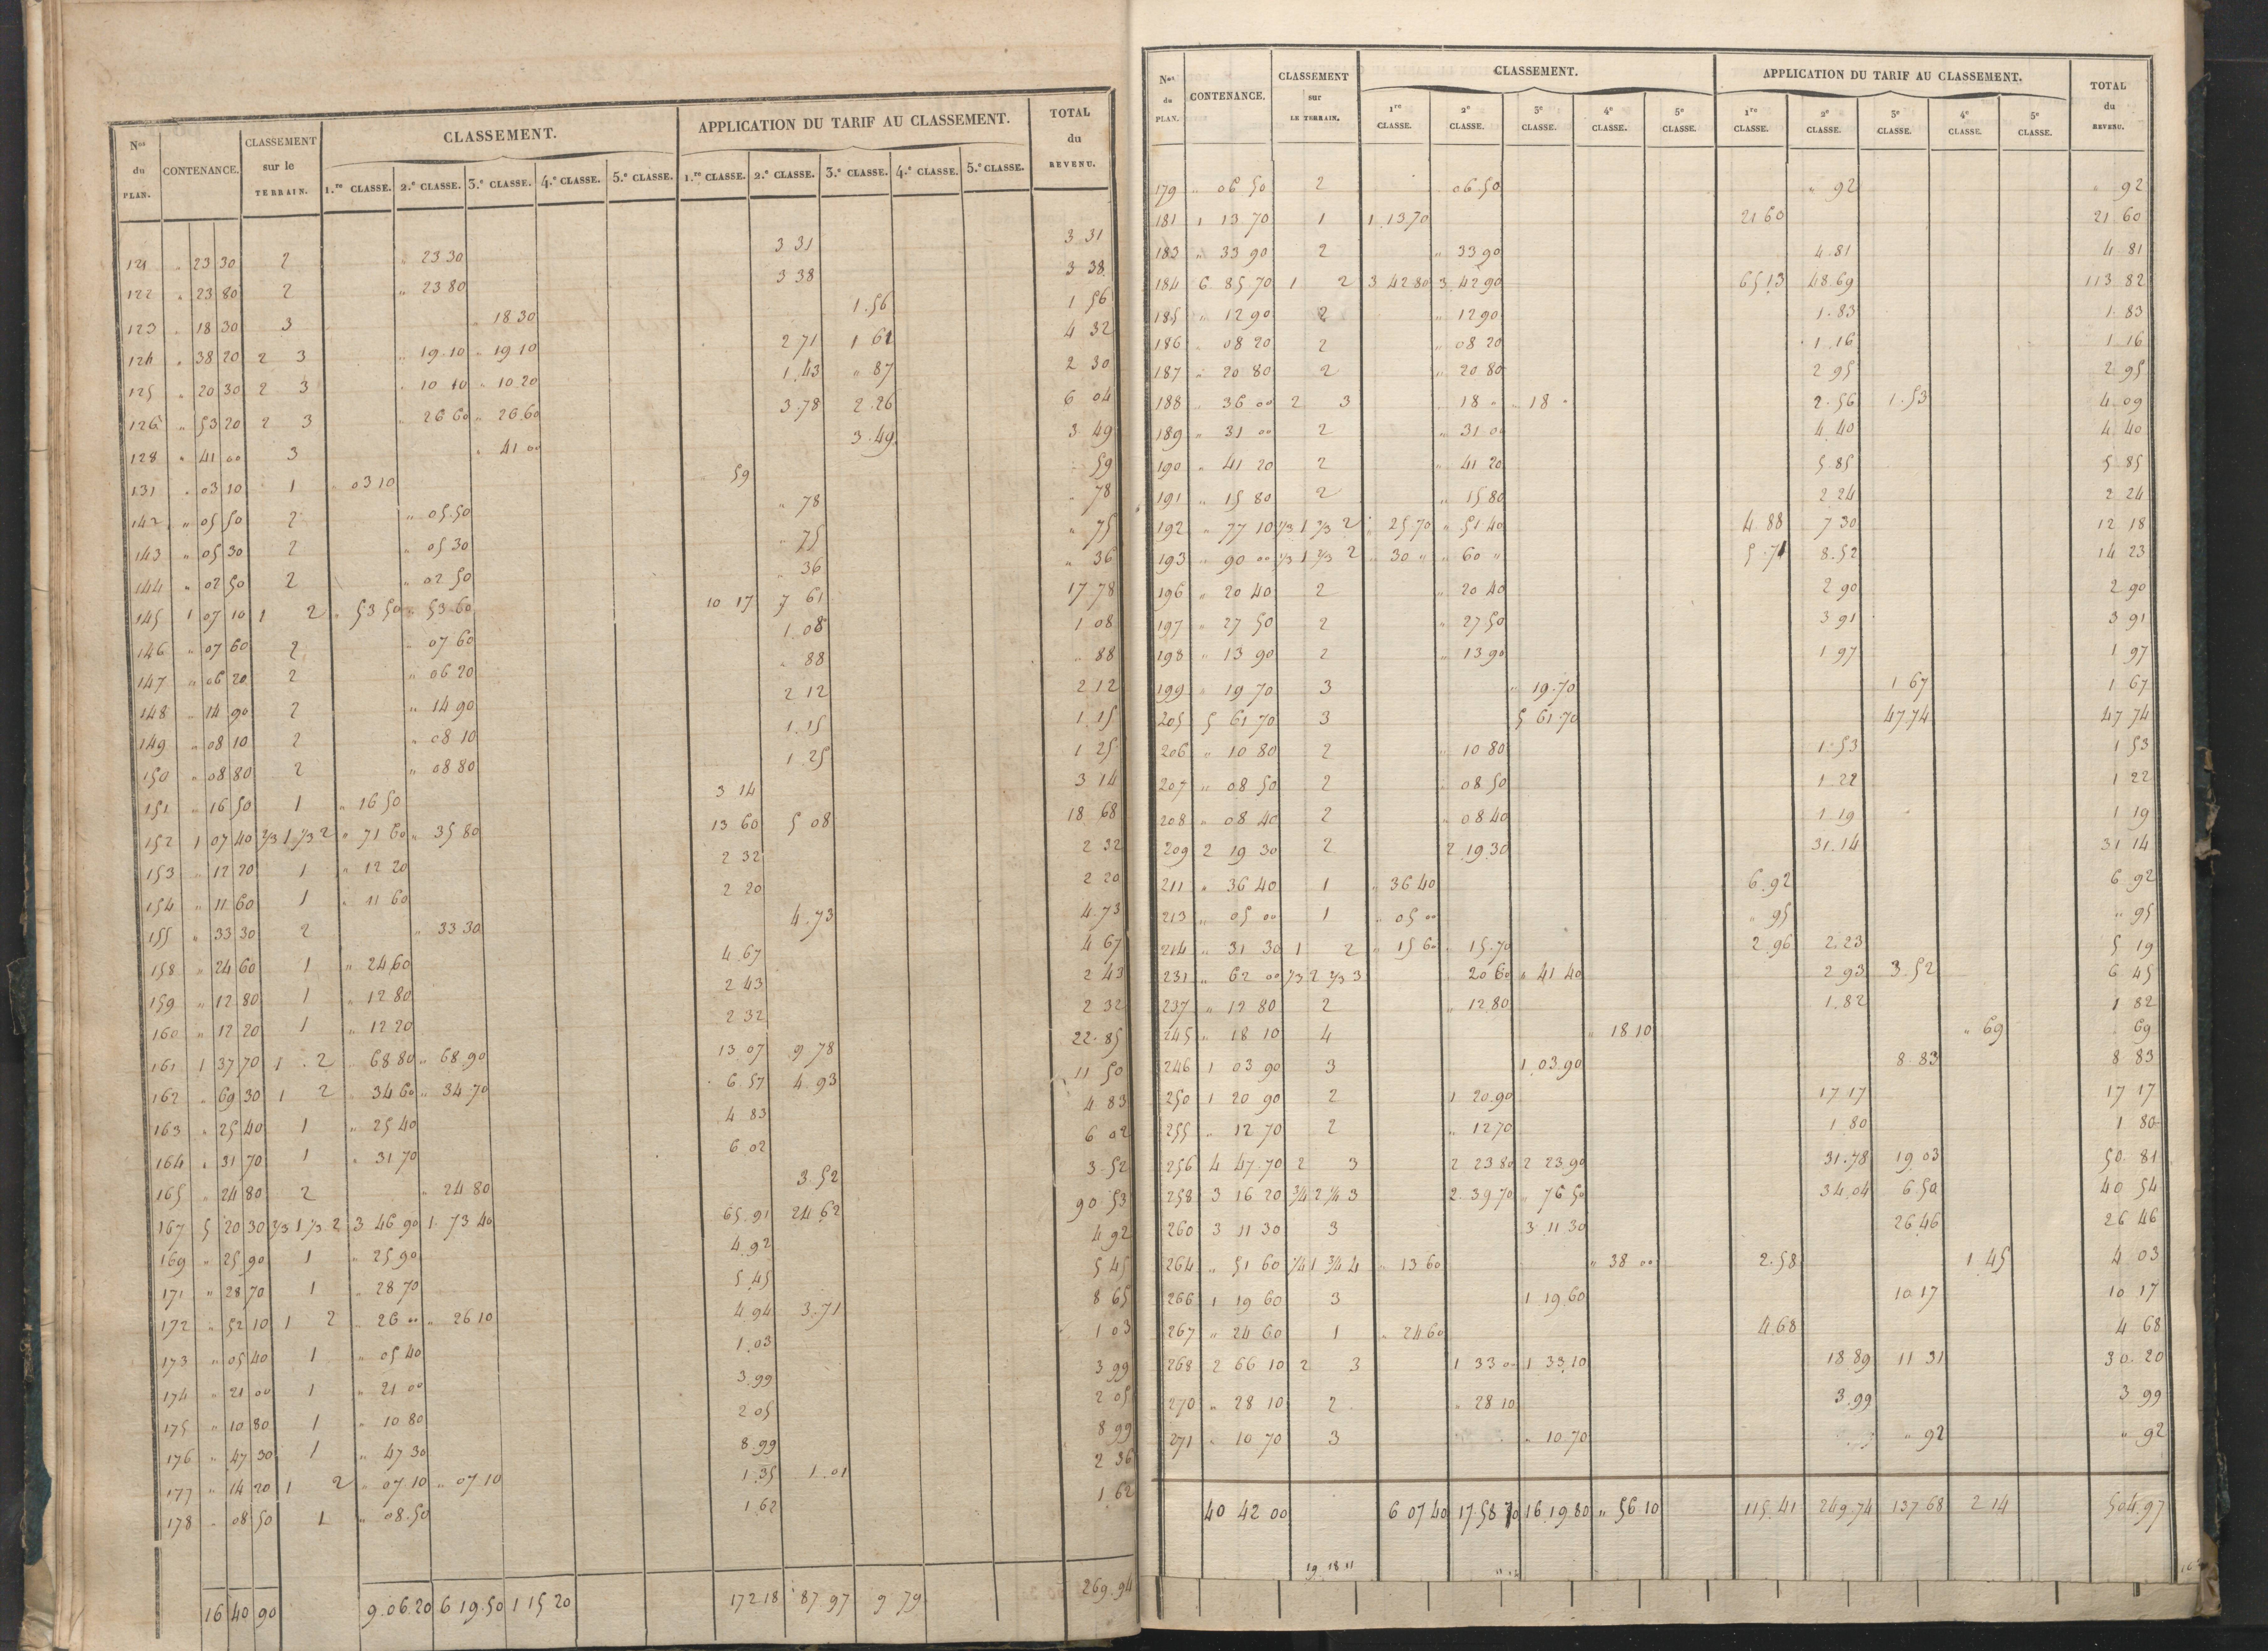 Nos du PLAN. CONTENANCE. CLASSEMENT sur le TERRAIN. CLASSEMENT. APPLICATION DU TARIF AU CLASSEMENT. TOTAL du REVENU.
1.re CLASSE. 2.e CLASSE. 3.e CLASSE. 4.e CLASSE. 5.e CLASSE. 1.re CLASSE. 2.e CLASSE. 3.e CLASSE. 4.e CLASSE. 5.e CLASSE.
121 " 23 30 2 " 23 30 3 31 3 31
122 " 23 80 2 " 23 80 3 38 3 38
123 " 18 30 3 " 18 30 1.56 1 56
124 " 38 20 2 3 " 19.10 " 19 10 2 71 1 61 4 32
125 " 20 30 2 3 " 10 10 " 10 20 1.43 " 87 2 30
126 " 53 20 2 3 " 26 60 " 26 60 3.78 2.26 6 04
128 " 41 00 3 " 41 00 3.49 3 49
131 " 03 10 1 " 03 10 59 " 59
142 " 05 50 2 " 05.50 " 78 " 78
143 " 05 30 2 " 05 30 " 75 " 75
144 " 02 50 2 " 02 50 " 36 " 36
145 1 07 10 1 2 " 53 50 " 53.60 10 17 7 61 17.78
146 " 07 60 2 " 07 60 1.08 1 08
147 " 06 20 2 " 06 20 " 88 " 88
148 " 14 90 2 " 14 90 2 12 2 12
149 " 08 10 2 " 08 10 1.15 1.15
150 " 08 80 2 " 08 80 1.25 1 25
151 " 16 50 1 " 16 50 3 14 3 14
152 1 07 40 2/3 1 1/3 2 " 71 60 " 35 80 13 60 5 08 18 68
153 " 12 20 1 " 12 20 2 32 2 32
154 " 11 60 1 " 11 60 2 20 2 20
155 " 33 30 2 " 33 30 4.73 4.73
158 " 24 60 1 " 24 60 4.67 4 67
159 " 12 80 1 " 12 80 2 43 2 43
160 " 12 20 1 " 12 20 2 32 2 32
161 1 37 70 1 2 " 68 80 " 68.90 13 07 9 78 22.85
162 " 69 30 1 2 " 34 60 " 34.70 6.57 4.93 11 50
163 " 25 40 1 " 25 40 4 83 4 83
164 " 31 70 1 " 31 70 6 02 6 02
165 " 24 80 2 " 24 80 3.52 3.52
167 5 20 30 2/3 1 1/3 2 3 46 90 1 73 40 65.91 24 62 90 53
169 " 25 90 1 " 25 90 4.92 4 92
171 " 28 70 1 " 28 70 5.45 5 45
172 " 52 10 1 2 " 26 00 " 26 10 4 94 3.71 8 65
173 " 05 40 1 " 05 40 1.03 1 03
174 " 21 00 1 " 21 00 3.99 3 99
175 " 10 80 1 " 10 80 2 05 2 05
176 " 47 30 1 " 47 30 8.99 8 99
177 " 14 20 1 2 " 07.10 " 07.10 1.35 1.01 2 36
178 " 08 50 1 " 08.50 1 62 1.62
16 40 90 9.06.20 6 19.50 1 15 20 172 18 87 97 9 79 269.94
Nos du PLAN. CONTENANCE. CLASSEMENT sur LE TERRAIN. CLASSEMENT. APPLICATION DU TARIF AU CLASSEMENT. TOTAL du REVENU.
1re CLASSE. 2e CLASSE. 3e CLASSE. 4e CLASSE. 5e CLASSE. 1re CLASSE. 2e CLASSE. 3e CLASSE. 4e CLASSE. 5e CLASSE.
179 " 06 50 2 06.50 " 92 " 92
181 1 13 70 1 1.13.70 21 60 21 60
183 " 33 90 2 " 33 90 4.81 4 81
184 6 85 70 1 2 3 42 80 3 42 90 65.13 48.69 113 82
185 " 12 90 2 " 12 90 1.83 1.83
186 " 08 20 2 " 08 20 1.16 1 16
187 " 20 80 2 " 20 80 2 95 2 95
188 " 36 00 2 3 " 18 " " 18 " 2.56 1.53 4 09
189 " 31 00 2 " 31 00 4 40 4 40
190 " 41 20 2 " 41 20 5 85 5 85
191 " 15 80 2 " 15 80 2 24 2 24
192 " 77 10 1/3 1 2/3 2 " 25 70 " 51 40 4 88 7 30 12 18
193 " 90 00 1/3 1 2/3 2 " 30 " " 60 " 5.71 8.52 14 23
196 " 20 40 2 " 20 40 2 90 2 90
197 " 27 50 2 " 27.50 3 91 3 91
198 " 13 90 2 " 13 90 1 97 1 97
199 " 19 70 3 " 19.70 1 67 1 67
205 5 61 70 3 5 61.70 47.74 47 74
206 " 10 80 2 " 10 80 1.53 1 53
207 " 08 50 2 " 08.50 1 22 1 22
208 " 08 40 2 " 08 40 1 19 1 19
209 2 19 30 2 2.19.30 31.14 31 14
211 " 36 40 1 " 36 40 6.92 6 92
213 " 05 00 1 " 05 00 " 95 " 95
214 " 31 30 1 2 " 15 60 " 15.70 2.96 2.23 5 19
231 " 62 00 1/3 2 2/3 3 20 60 " 41 40 2 93 3.52 6 45
237 " 12 80 2 " 12.80 1.82 1 82
245 " 18 10 4 " 18 10 " 69 69
246 1 03 90 3 1.03.90 8.83 8 83
250 1 20 90 2 1 20.90 17 17 17 17
255 " 12 70 2 " 12 70 1 80 1 80
256 4 47.70 2 3 2 23 80 2 23.90 31.78 19 03 50.81
258 3 16 20 3/4 2 1/4 3 2.39.70 " 76.50 34.04 6.50 40 54
260 3 11 30 3 3 11 30 26.46 26 46
264 " 51 60 1/4 1 3/4 4 " 13 60 " 38 00 2.58 1 45 4 03
266 1 19 60 3 1 19 60 10 17 10 17
267 " 24 60 1 " 24 60 4.68 4 68
268 2 66 10 2 3 1 33 00 1 33.10 18.89 11 31 30.20
270 " 28 10 2 " 28 10 3.99 3 99
271 " 10 70 3 " 10 70 " 92 " 92
40 42 00 6 07 40 17.58 70 16.19.80 " 56 10 115.41 249.74 137 68 2 14 504.97
19 18 11